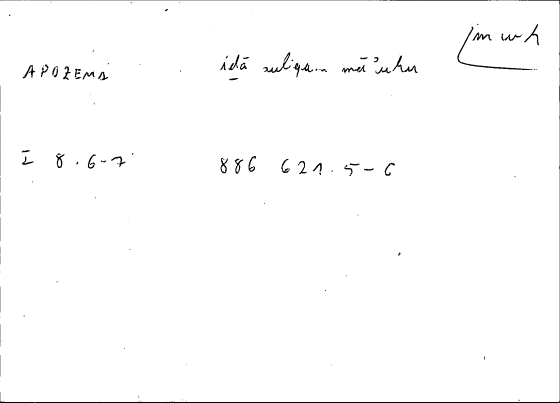 jmwh
APOZEMA idā suliqa... mā'uhu
I 8.6-7 886 621.5-6